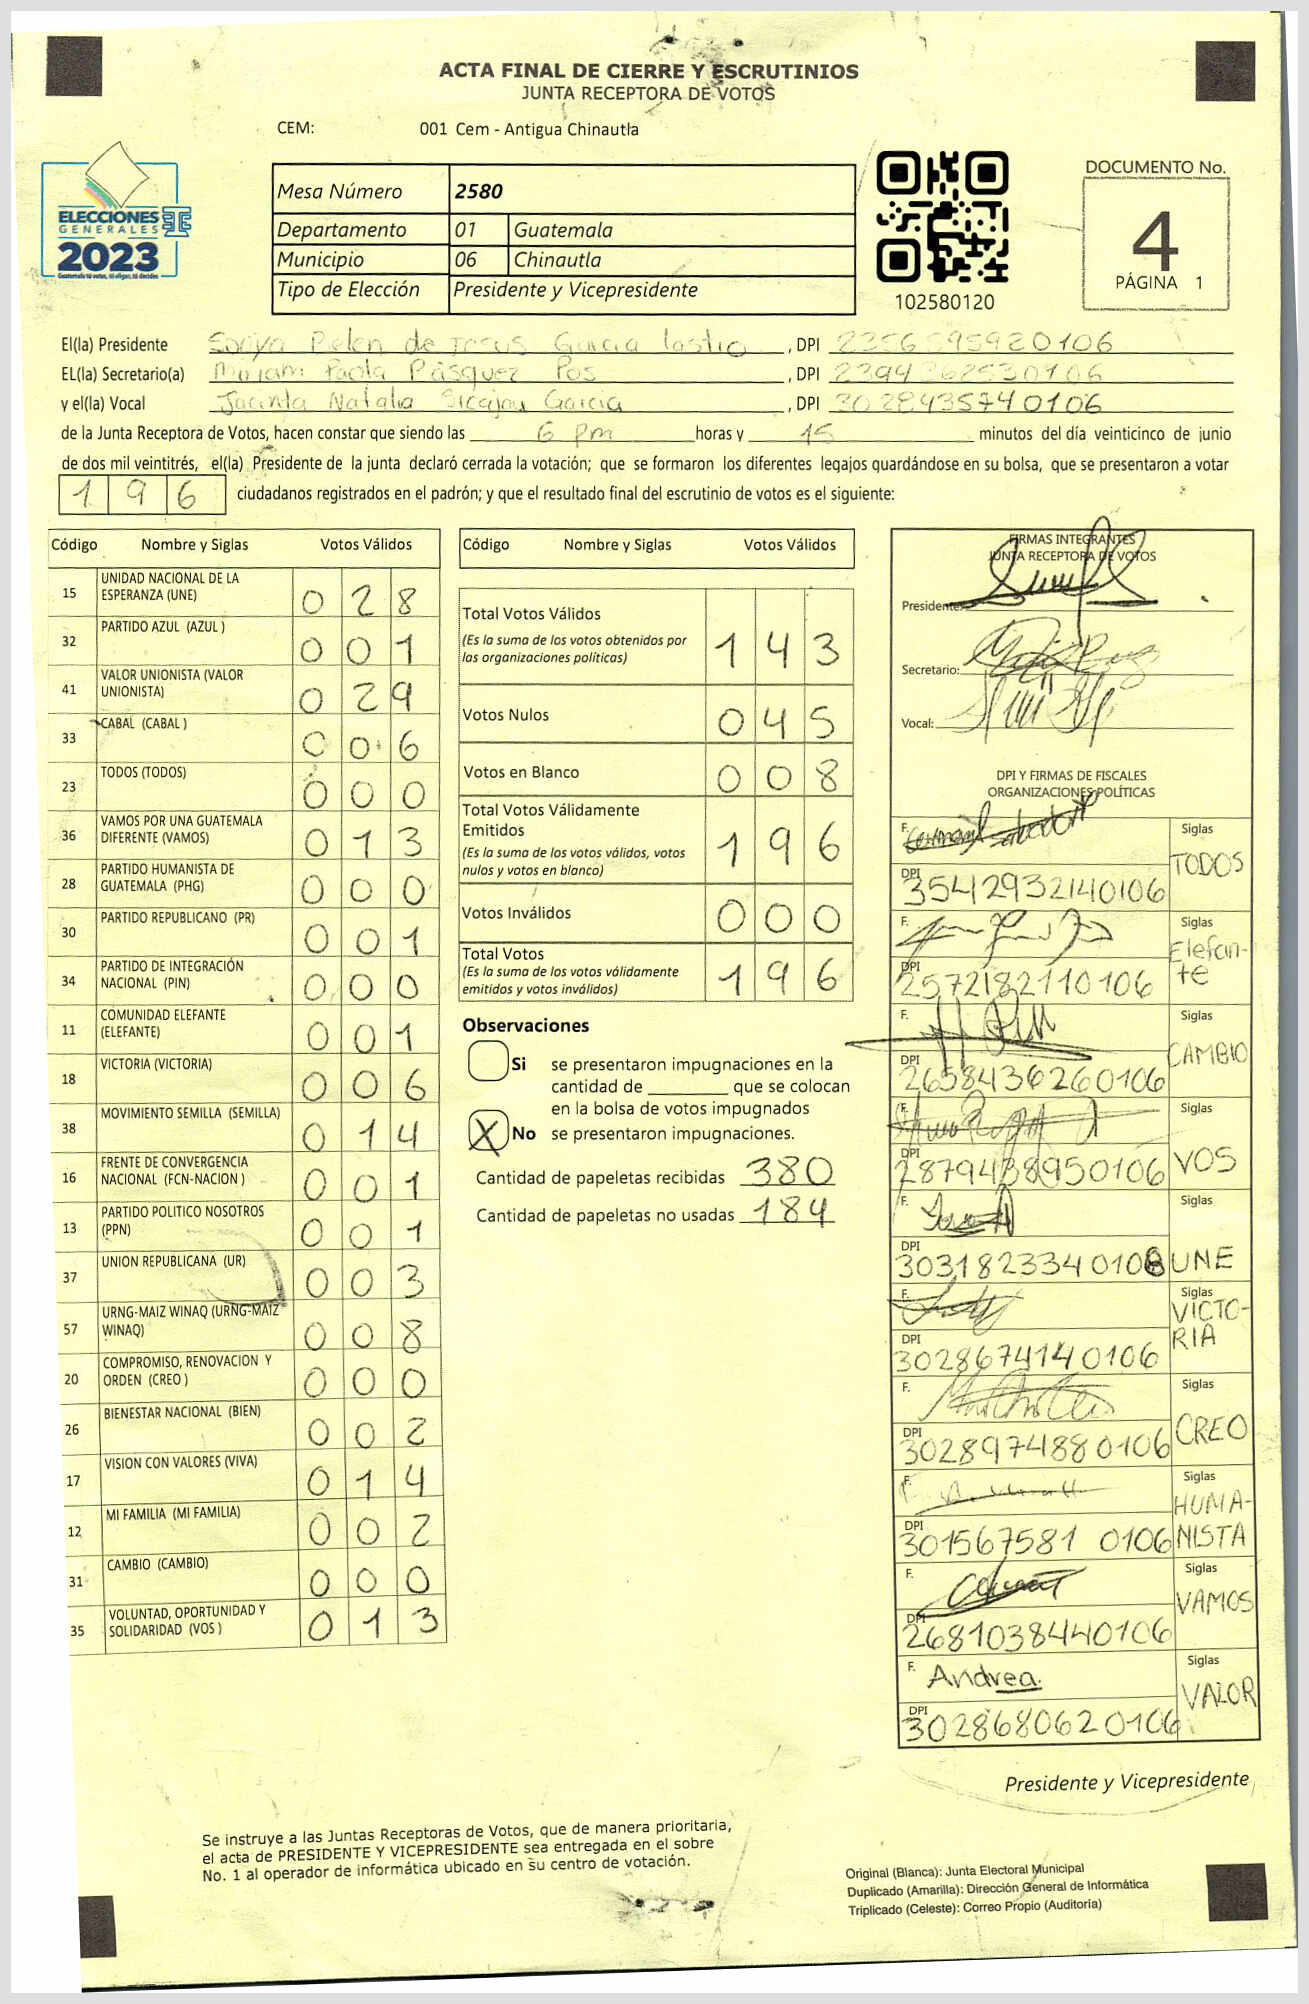 ACTA FINAL DE CIERRE Y ESCRUTINIOS
JUNTA RECEPTORA DE VOTOS
CEM: 001 Cem - Antigua Chinautla
ELECCIONES
GENERALES
2023
Guatemala tú votas, tú eliges, tú decides
Mesa Número 2580
Departamento 01 Guatemala
Municipio 06 Chinautla
Tipo de Elección Presidente y Vicepresidente
102580120
DOCUMENTO No.
4
PÁGINA 1
El(la) Presidente Belen de Jesus Garcia , DPI
EL(la) Secretario(a) Miriam Paola Pos , DPI
y el(la) Vocal Jacinta Natalia Garcia , DPI 3028435740106
de la Junta Receptora de Votos, hacen constar que siendo las 6 pm horas y 15 minutos del día veinticinco de junio
de dos mil veintitrés, el(la) Presidente de la junta declaró cerrada la votación; que se formaron los diferentes legajos guardándose en su bolsa, que se presentaron a votar
196 ciudadanos registrados en el padrón; y que el resultado final del escrutinio de votos es el siguiente:
Código Nombre y Siglas Votos Válidos
15 UNIDAD NACIONAL DE LA ESPERANZA (UNE) 028
32 PARTIDO AZUL (AZUL ) 001
41 VALOR UNIONISTA (VALOR UNIONISTA) 029
33 CABAL (CABAL ) 006
23 TODOS (TODOS) 000
36 VAMOS POR UNA GUATEMALA DIFERENTE (VAMOS) 013
28 PARTIDO HUMANISTA DE GUATEMALA (PHG) 000
30 PARTIDO REPUBLICANO (PR) 001
34 PARTIDO DE INTEGRACIÓN NACIONAL (PIN) 000
11 COMUNIDAD ELEFANTE (ELEFANTE) 001
18 VICTORIA (VICTORIA) 006
38 MOVIMIENTO SEMILLA (SEMILLA) 014
16 FRENTE DE CONVERGENCIA NACIONAL (FCN-NACION ) 001
13 PARTIDO POLITICO NOSOTROS (PPN) 001
37 UNION REPUBLICANA (UR) 003
57 URNG-MAIZ WINAQ (URNG-MAIZ WINAQ) 008
20 COMPROMISO, RENOVACION Y ORDEN (CREO ) 000
26 BIENESTAR NACIONAL (BIEN) 002
17 VISION CON VALORES (VIVA) 014
12 MI FAMILIA (MI FAMILIA) 002
31 CAMBIO (CAMBIO) 000
35 VOLUNTAD, OPORTUNIDAD Y SOLIDARIDAD (VOS ) 013
Código Nombre y Siglas Votos Válidos
Total Votos Válidos
(Es la suma de los votos obtenidos por
las organizaciones políticas) 143
Votos Nulos 045
Votos en Blanco 008
Total Votos Válidamente
Emitidos
(Es la suma de los votos válidos, votos
nulos y votos en blanco) 196
Votos Inválidos 000
Total Votos
(Es la suma de los votos válidamente
emitidos y votos inválidos) 196
Observaciones
Si se presentaron impugnaciones en la
cantidad de ________ que se colocan
en la bolsa de votos impugnados
X No se presentaron impugnaciones.
Cantidad de papeletas recibidas 380
Cantidad de papeletas no usadas 184
FIRMAS INTEGRANTES
JUNTA RECEPTORA DE VOTOS
Presidente:
Secretario:
Vocal:
DPI Y FIRMAS DE FISCALES
ORGANIZACIONES POLÍTICAS
F. Siglas TODOS
DPI 35412932140106
F. Siglas Elefan-
te
DPI 2572182110106
F. Siglas CAMBIO
DPI 2658436260106
F. Siglas VOS
DPI 2879438950106
F. Siglas UNE
DPI
F. Siglas VICTO-
RIA
DPI 3028674140106
F. Siglas CREO
DPI 3028974880106
F. Siglas HUMA-
NISTA
DPI 301567581 0106
F. Siglas VAMOS
DPI 2681038440106
F. Andrea. Siglas VALOR
DPI 3028680620106
Presidente y Vicepresidente
Se instruye a las Juntas Receptoras de Votos, que de manera prioritaria,
el acta de PRESIDENTE Y VICEPRESIDENTE sea entregada en el sobre
No. 1 al operador de informática ubicado en su centro de votación.
Original (Blanca): Junta Electoral Municipal
Duplicado (Amarilla): Dirección General de Informática
Triplicado (Celeste): Correo Propio (Auditoría)